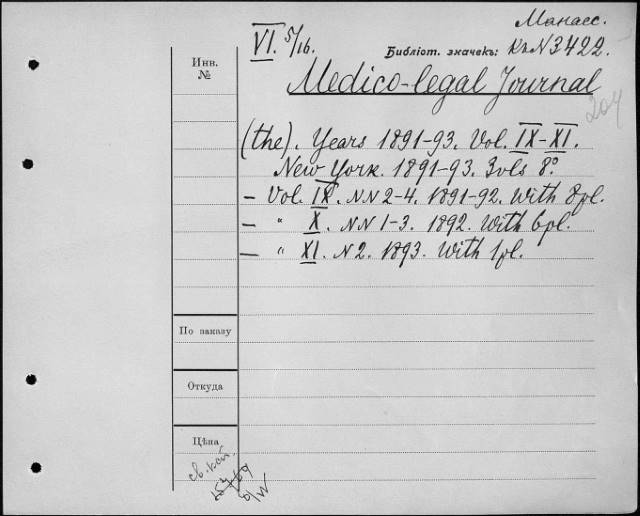 Манасс.
VI. 5/16. Библіот. значекъ: К. N 3422.
Инв.
№
Medico-legal Journal
204
(the). Years 1891-93. Vol. IX-XI.
New York. 1891-93. 3vls 8º.
– Vol. IX. NN 2-4. 1891-92. With 8pl.
– " X. NN 1-3. 1892. With 6pl.
– " XI. N 2. 1893. With 1pl.
По заказу
Откуда
Цѣна
св. кат.